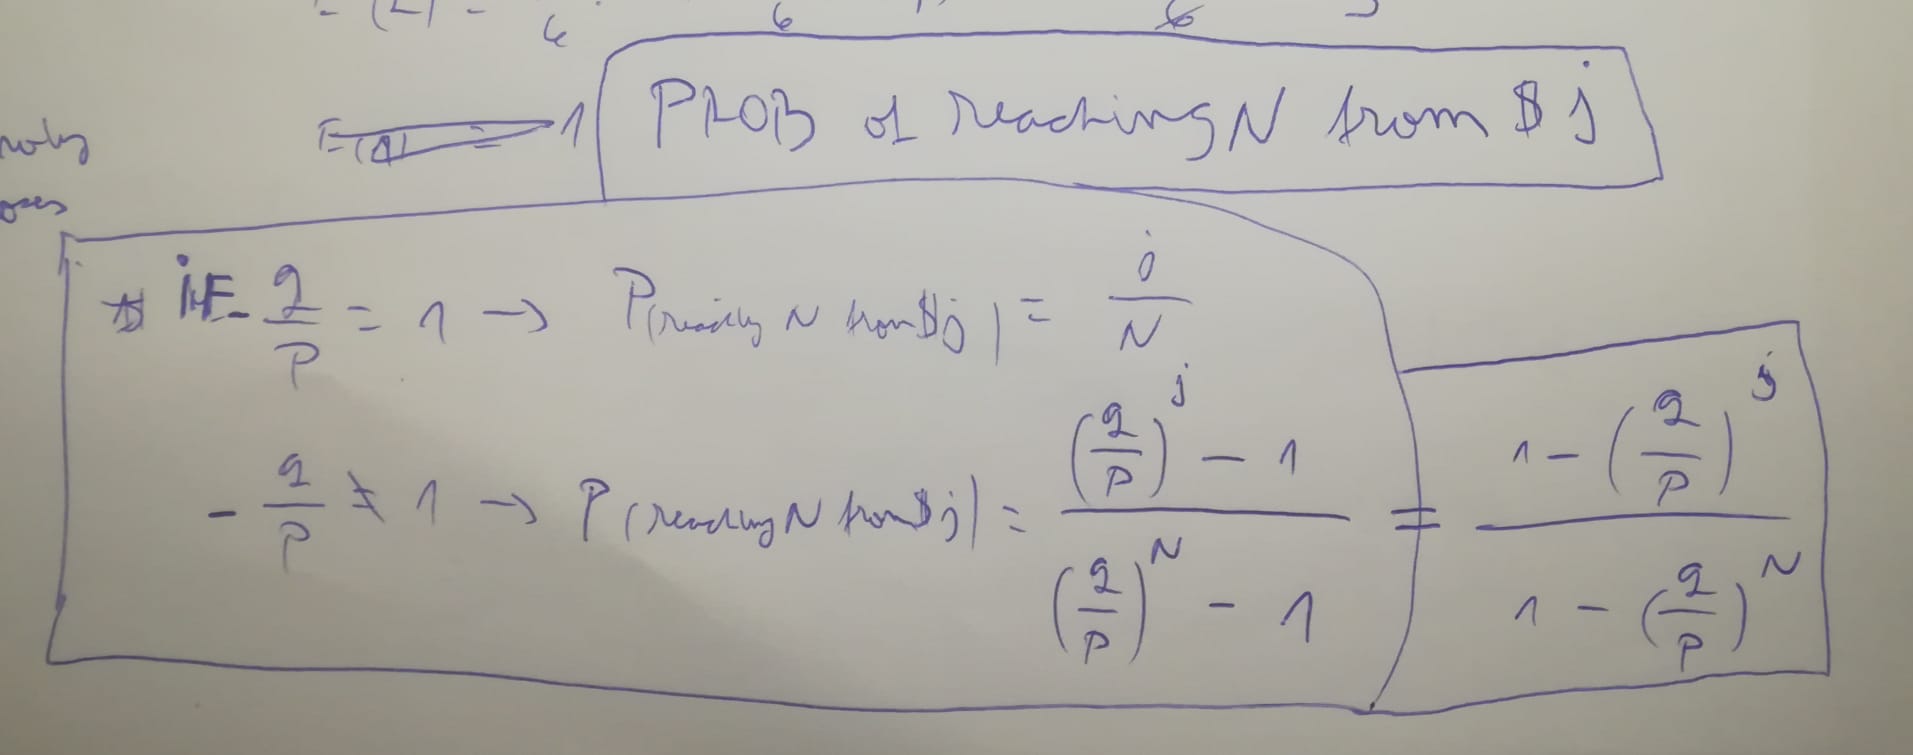 PROB of reaching N from $ j
* iF - q/p = 1 → P(reaching N from $j) = j/N
- q/p ≠ 1 → P(reaching N from $j) = ((q/p)^j - 1)/((q/p)^N - 1) = (1 - (q/p)^j)/(1 - (q/p)^N)